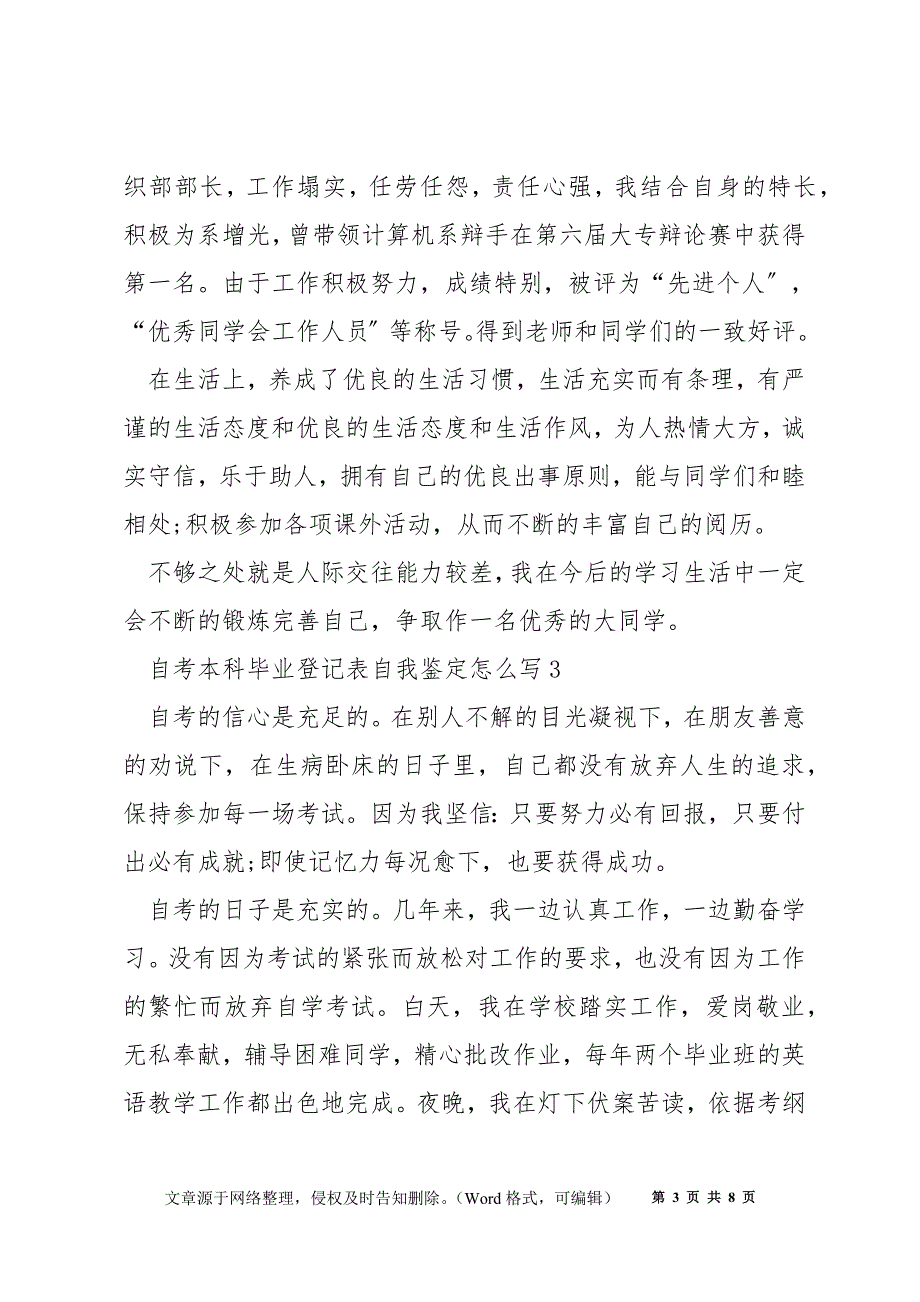 织部部长，工作塌实，任劳任怨，责任心强，我结合自身的特长，
积极为系增光，曾带领计算机系辩手在第六届大专辩论赛中获得
第一名。由于工作积极努力，成绩特别，被评为“先进个人〞，
“优秀同学会工作人员〞等称号。得到老师和同学们的一致好评。
在生活上，养成了优良的生活习惯，生活充实而有条理，有严
谨的生活态度和优良的生活态度和生活作风，为人热情大方，诚
实守信，乐于助人，拥有自己的优良出事原则，能与同学们和睦
相处;积极参加各项课外活动，从而不断的丰富自己的阅历。
不够之处就是人际交往能力较差，我在今后的学习生活中一定
会不断的锻炼完善自己，争取作一名优秀的大同学。
自考本科毕业登记表自我鉴定怎么写 3
自考的信心是充足的。在别人不解的目光凝视下，在朋友善意
的劝说下，在生病卧床的日子里，自己都没有放弃人生的追求，
保持参加每一场考试。因为我坚信：只要努力必有回报，只要付
出必有成就;即使记忆力每况愈下，也要获得成功。
自考的日子是充实的。几年来，我一边认真工作，一边勤奋学
习。没有因为考试的紧张而放松对工作的要求，也没有因为工作
的繁忙而放弃自学考试。白天，我在学校踏实工作，爱岗敬业，
无私奉献，辅导困难同学，精心批改作业，每年两个毕业班的英
语教学工作都出色地完成。夜晚，我在灯下伏案苦读，依据考纲
文章源于网络整理，侵权及时告知删除。（Word 格式，可编辑） 第 3 页 共 8 页